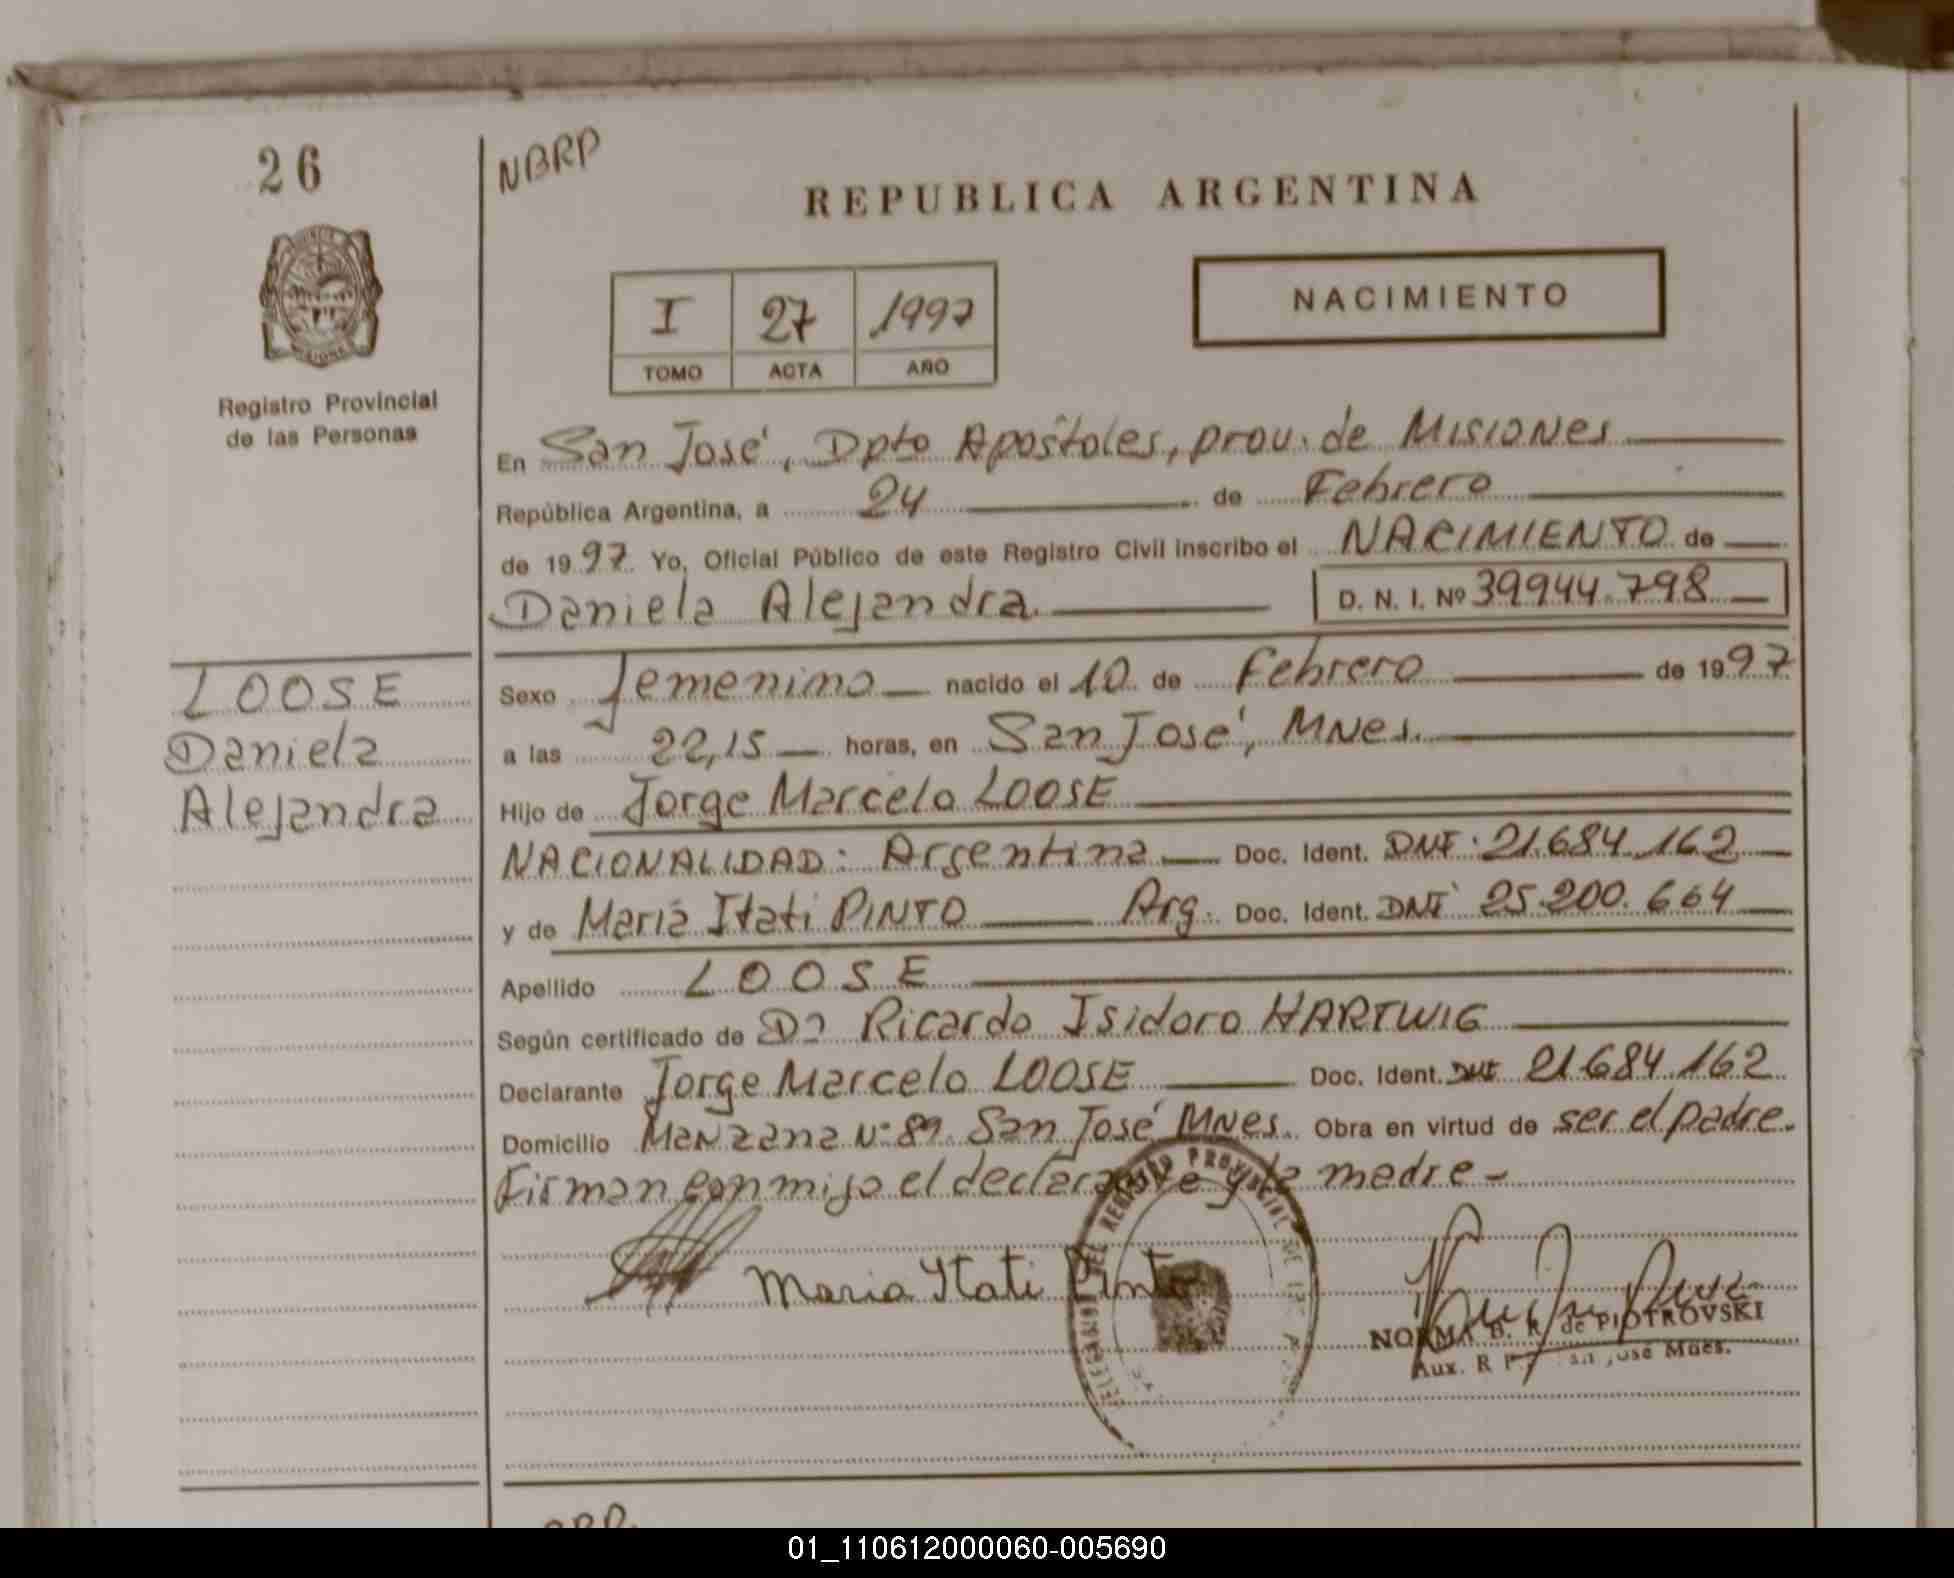 26
NBRP
REPUBLICA ARGENTINA
NACIMIENTO
I 27 1997
TOMO ACTA AÑO
Registro Provincial
de las Personas
En San José, Dpto Apóstoles, prov. de Misiones
República Argentina, a 24 de Febrero
de 1997. Yo, Oficial Público de este Registro Civil inscribo el NACIMIENTO de
Daniela Alejandra.
D. N. I. Nº 39944.798
LOOSE
Daniela
Alejandra
Sexo femenino nacido el 10 de Febrero de 1997
a las 22,15 horas, en San José, MNes.
Hijo de Jorge Marcelo LOOSE
NACIONALIDAD: Argentina Doc. Ident. DNI. 21.684.162
y de María Itati PINTO Arg. Doc. Ident. DNI 25.200.664
Apellido LOOSE
Según certificado de Ricardo Isidoro HARTWIG
Declarante Jorge Marcelo LOOSE Doc. Ident. DNI 21.684.162
Domicilio Manzana Nº 89. San José MNes. Obra en virtud de ser el padre.
Firman conmigo el declarante y la madre -
Maria Itati Pinto
DEL REGISTRO PROVINCIAL DE
NORMA B. R. de PIOTROVSKI
Aux. R P José Mnes.
01_110612000060-005690